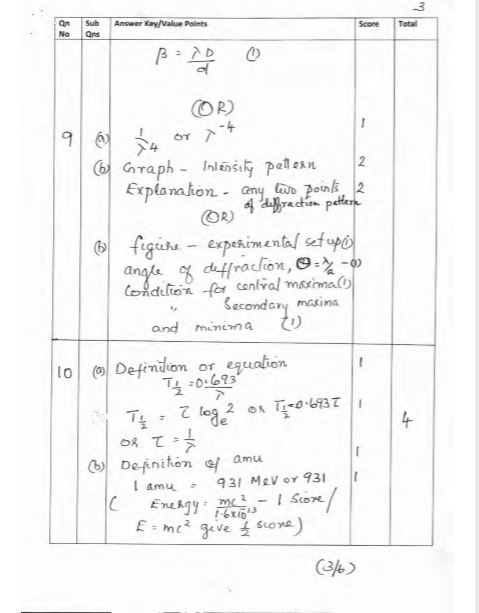 -3
Qn No | Sub Qns | Answer Key/Value Points | Score | Total
β = λD/d (1)
(OR)
9 (a) 1/λ4 or λ^-4 1
(b) Graph - Intensity pattern 2
Explanation - any two points 2
of diffraction pattern
(OR)
(b) figure - experimental set up(1)
angle of diffraction, θ = λ/a -(1)
Condition for central maxima(1)
" Secondary maxima
and minima (1)
10 (a) Definition or equation 1
T½ = 0.693/λ
T½ = τ log_e 2 or T½=0.693τ 1
4
or τ = 1/λ
(b) Definition of amu 1
1 amu = 931 MeV or 931 1
( Energy = mc²/1.6x10^13 - 1 Score/
E = mc² give ½ score)
(3/6)